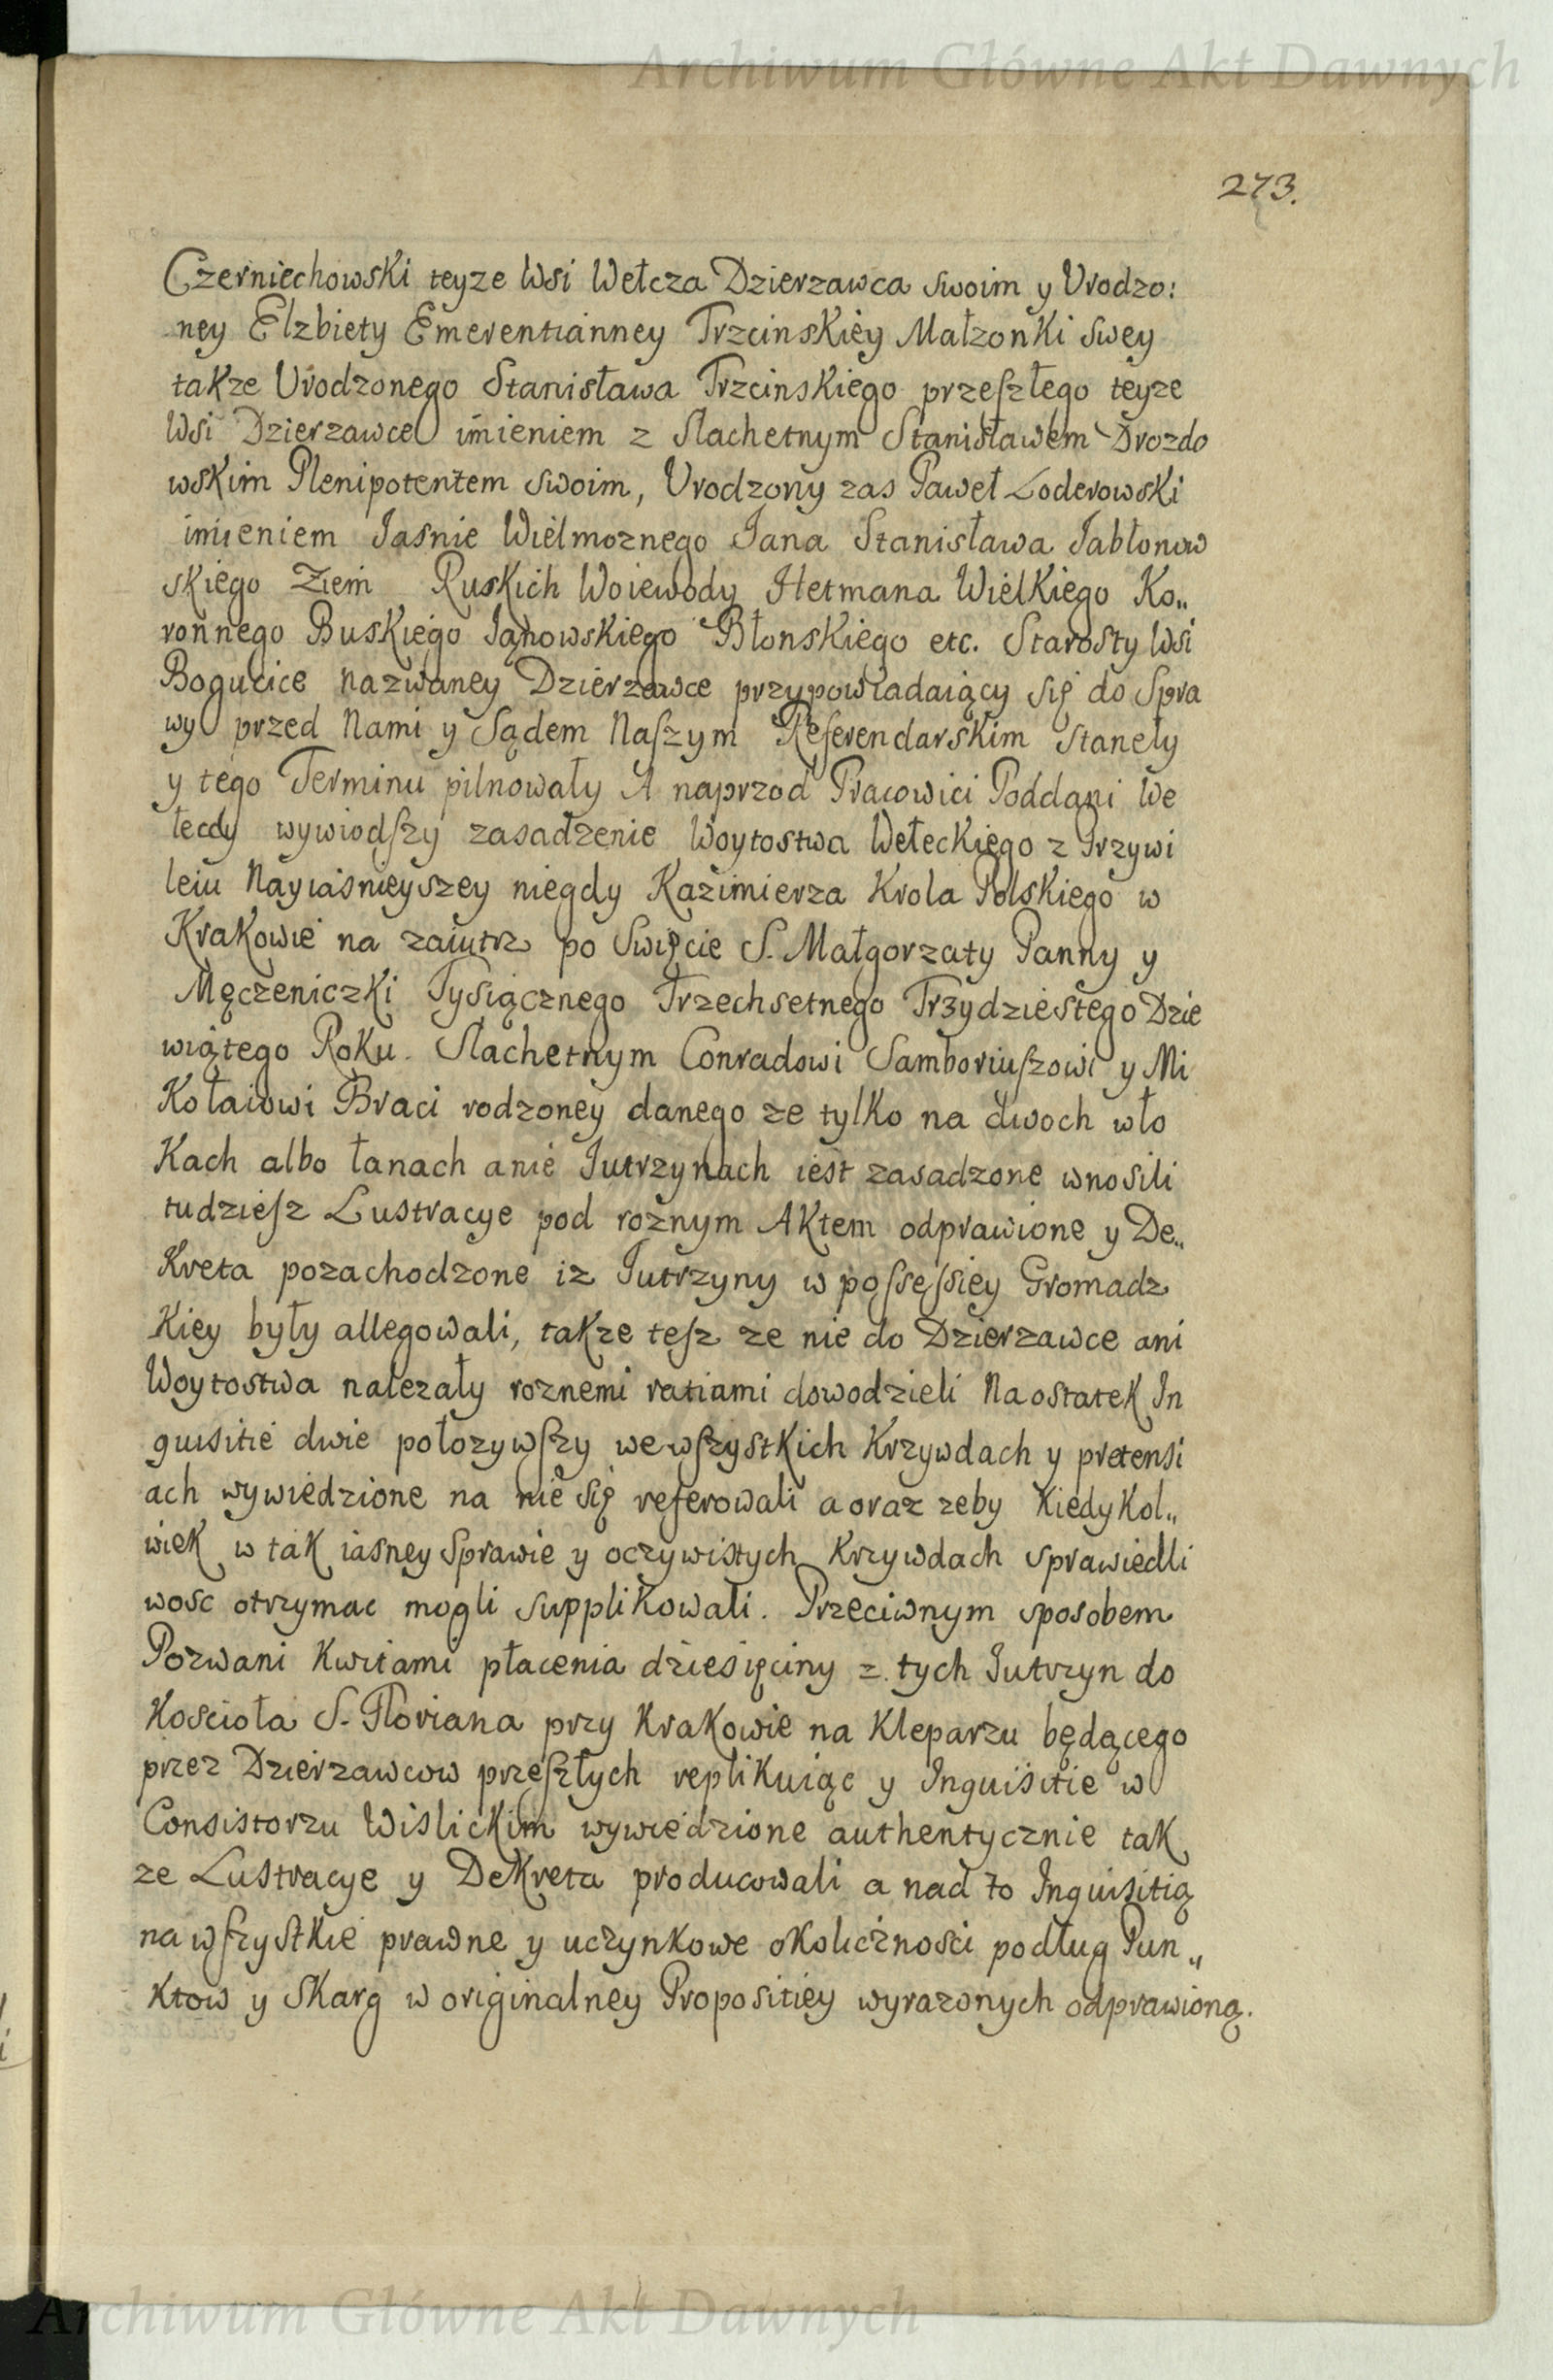 Archiwum Główne Akt Dawnych
273.
Czerniechowski teyze Wsi Wełcza Dzierzawca swoim y Vrodzo:
ney Elzbiety Emerentianney Trzcinskiey Małzonki swey
takze Vrodzonego Stanisława Trzcinskiego przeszłego teyze
Wsi Dzierzawce imieniem z Slachetnym Stanisławem Drozdo
wskim Plenipotentem swoim, Vrodzony zas Paweł Loderowski
imieniem Iasnie Wielmoznego Iana Stanisława Iabłonow
skiego Ziem Ruskich Woiewody Hetmana Wielkiego Ko„
ronnego Buskiego Ianowskiego Błonskiego etc. Starosty Wsi
Bogucice nazwaney Dzierzawce przypowiadaiący się do Spra
wy przed Nami y Sądem Naszym Referendarskim stanęły
y tego Terminu pilnowały A naprzod Pracowici Poddani We
łeccy wywiodszy zasadzenie Woytostwa Wełeckiego z Przywi
leiu Nayiasnieyszey niegdy Kazimierza Krola Polskiego w
Krakowie na zaiutrz po Swięcie S. Małgorzaty Panny y
Męczeniczki Tysiącznego Trzechsetnego Trzydziestego Dzie
wiątego Roku. Slachetnym Conradowi Samboriuszowi y Mi
Kołaiowi Braci rodzoney danego ze tylko na dwoch wło
Kach albo łanach a nie Iutrzynach iest zasadzone wnosili
tudziesz Lustracye pod roznym Aktem odprawione y De„
Kreta pozachodzone iz Iutrzyny w possessiey Gromadz
Kiey były allegowali, takze tesz ze nie do Dzierzawce ani
Woytostwa nalezały roznemi ratiami dowodzieli Na ostatek In
quisitie dwie połozywszy we wszystkich Krzywdach y pretensi
ach wywiedzione na nie się referowali a oraz zeby Kiedykol„
wiek w tak iasney Sprawie y oczywistych Krzywdach sprawiedli
wosc otrzymac mogli supplikowali. Przeciwnym sposobem
Pozwani Kwitami płacenia dziesięciny z tych Iutrzyn do
Koscioła S. Floriana przy Krakowie na Kleparzu będącego
przez Dzierzawcow przeszłych replikuiąc y Inquisitie w
Consistorzu Wislickim wywiedzione authentycznie tak
ze Lustracye y Dekreta producowali a nad to Inquisitią
na wszystkie prawne y uczynkowe okolicznosci podług Pun„
ktow y Skarg w originalney Propositiey wyrazonych odprawioną.
Archiwum Główne Akt Dawnych